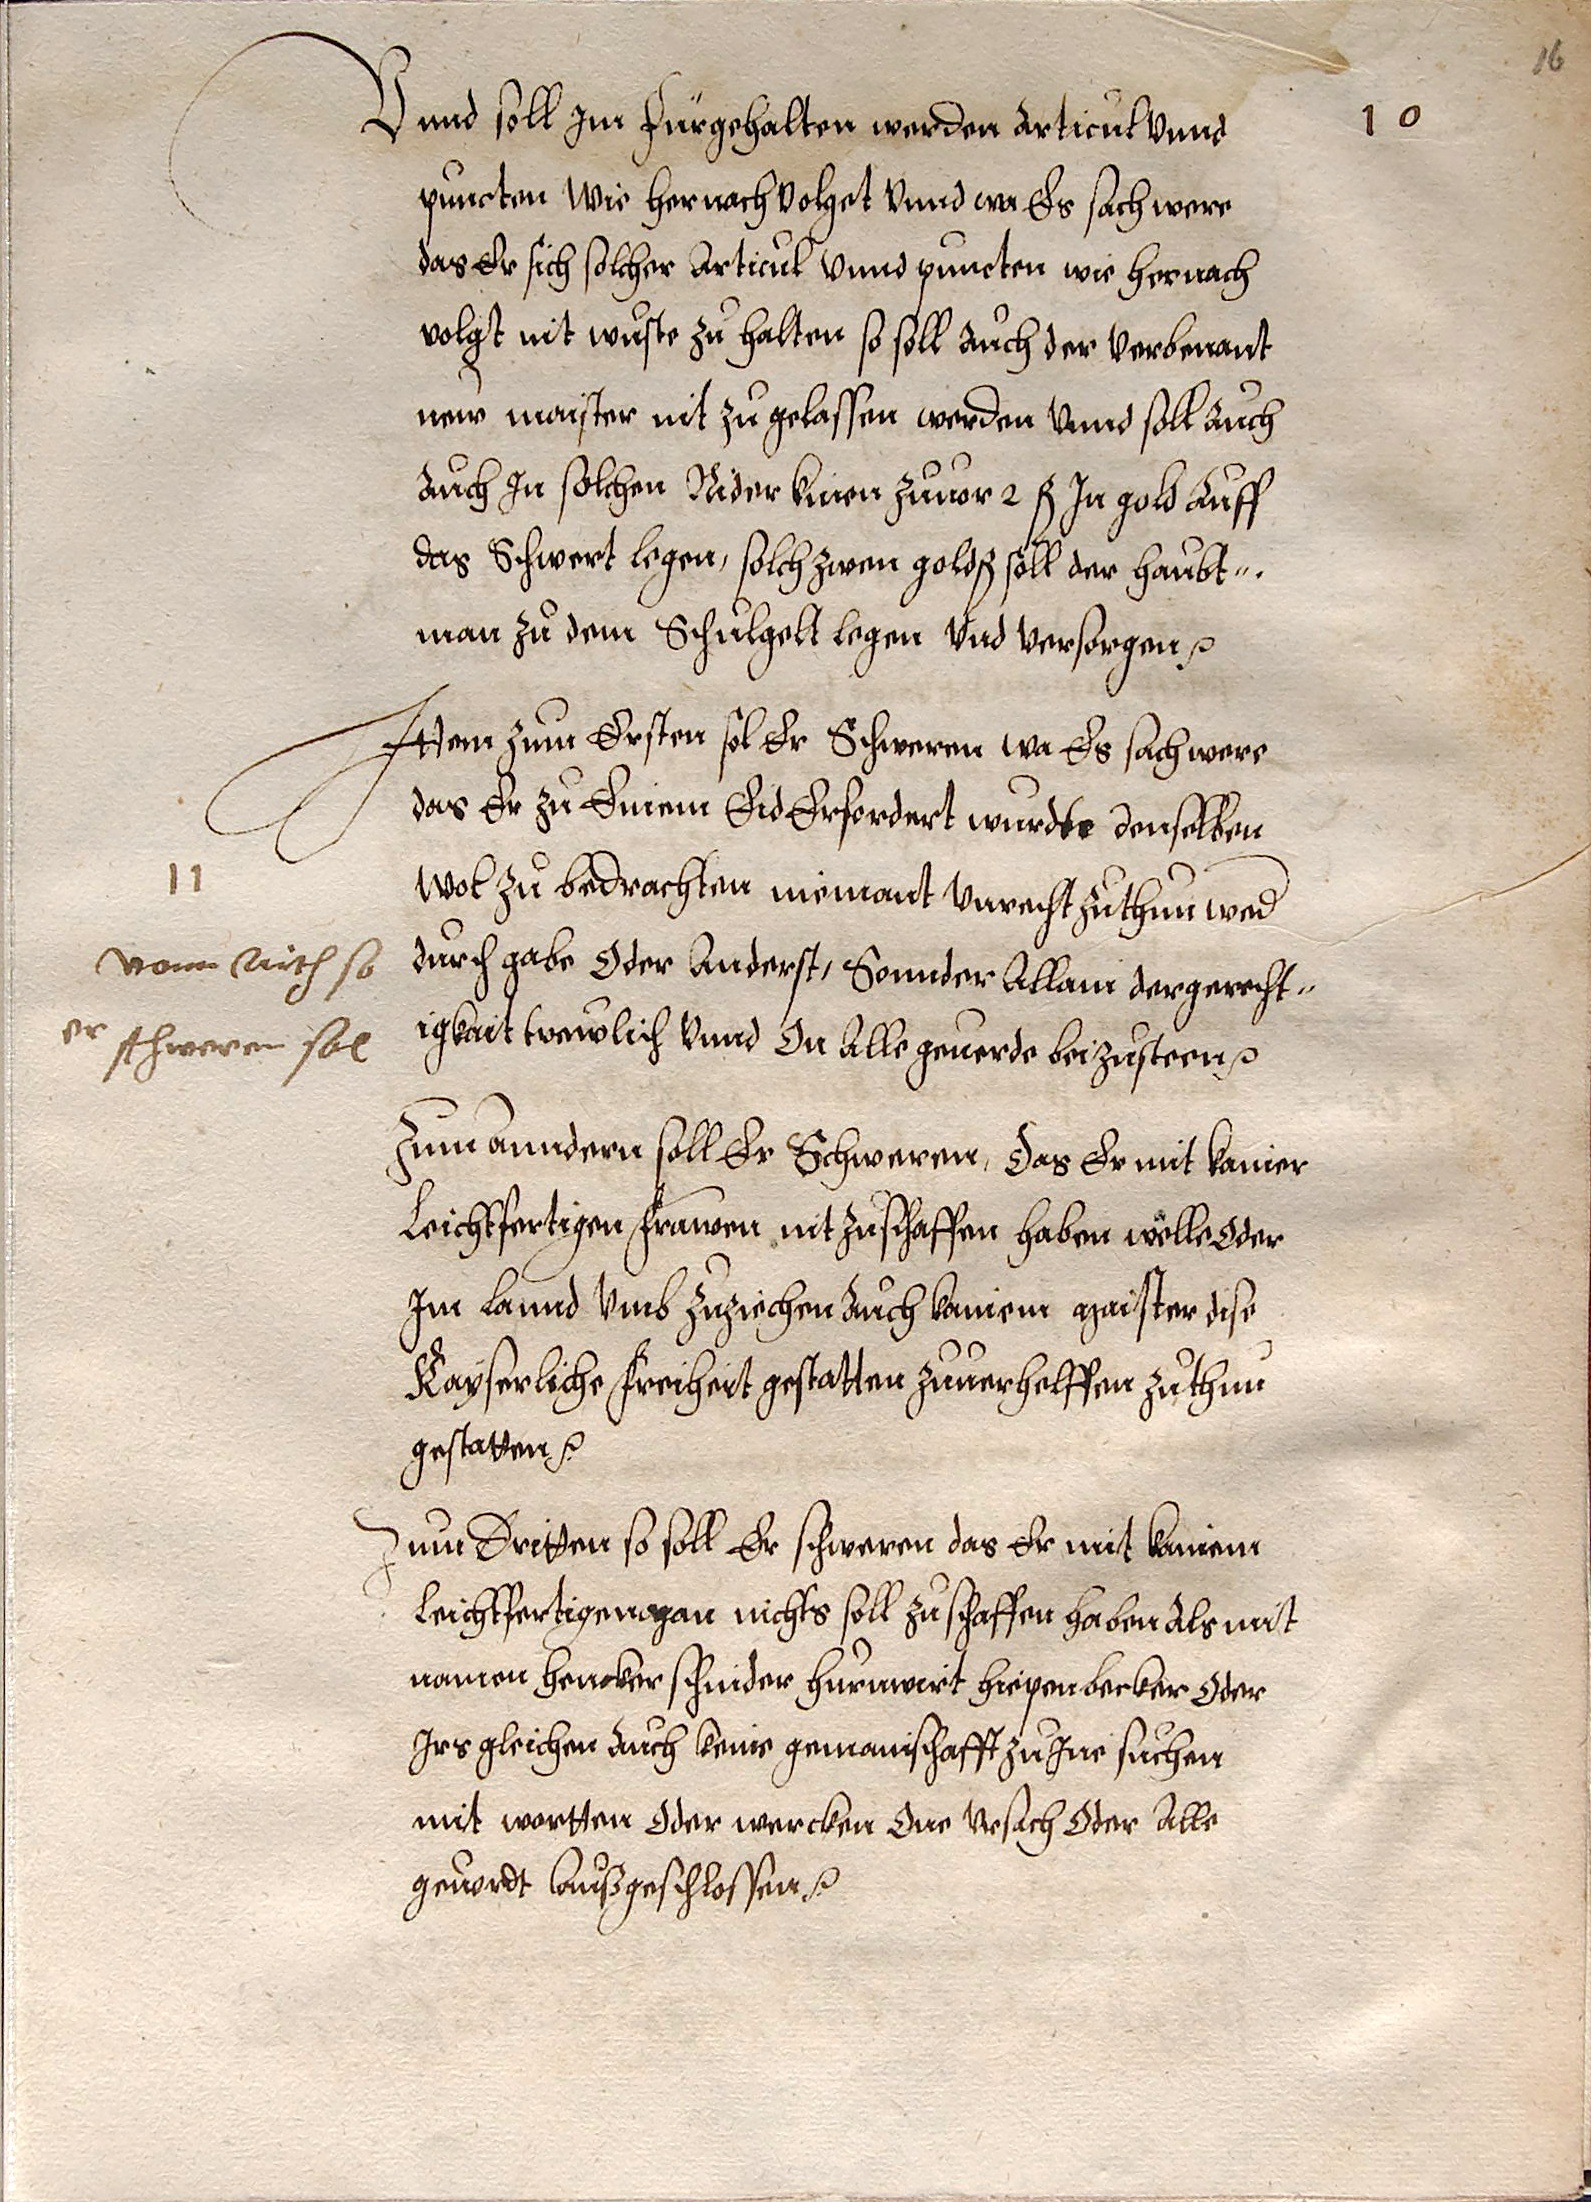 16
10
Vnnd soll Im Fürgehalten werden Articul Vnnd
puncten Wie hernach Volget Vnnd wa Es sach were
das Er sich solcher Articul Vnnd puncten wie hernach
volgt nit wuste zu halten so soll Auch der Verbenant
new maister nit zu gelassen werden Vnnd soll Auch
Auch In solchen Nider knien zuuor 2 fl In gold Auff
das Schwert legen, solch zwen gold fl soll der haubt„
man zu dem Schulgelt legen Vnd Versorgen
Ittem zum Ersten sol Er Schweren wa Es sach were
das Er zu Einem Eid Erfordert wurdte denselben
11
Wol zu bedrachten niemant Vnrecht zuthun wed
vonn Aith so
durch gabe Oder Anderst, Sonnder Allain der gerecht„
er schweren sol
igkait trewlich Vnnd On Alle geuerde beizusteen
Zum anndern soll Er Schweren, Das Er mit kainer
Leichtfertigen frawen nit zuschaffen haben wölle Oder
Im Lannd Vmb zuziechen Auch kainem maister dise
Kayserliche freiheit gestatten zuuerhelffen zuthun
gestatten
Zum Dritten so soll Er schweren das Er mit kainem
Leichtfertigen man nichts soll zuschaffen haben Als mit
namen hencker schinder hurnwirt hiepenbecker Oder
Irs gleichen Auch keine gemainschafft zu Ine suchen
mit wortten Oder wercken One Vrsach Oder Alle
geuerdt Außgeschlossen